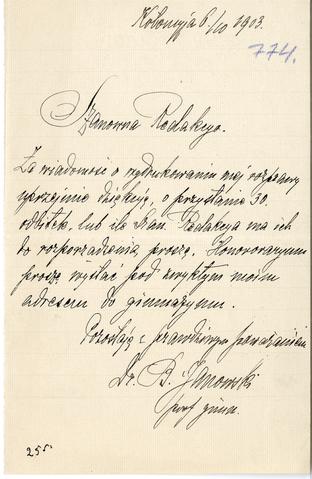 Kołomyja 6/10 1903.
774.
Szanowna Redakcyo.
Za wiadomość o wydrukowaniu mej rozprawy
uprzejmie dziękuję, o przysłanie 30
odbitek, lub ile Szan. Redakcya ma ich
do rozporządzenia, proszę. Honoraryum
proszę wysłać pod zwykłym moim
adresem do gimnazyum.
Pozostaję z prawdziwym poważaniem
Dr. B. Janowski
prof gimn.
255.